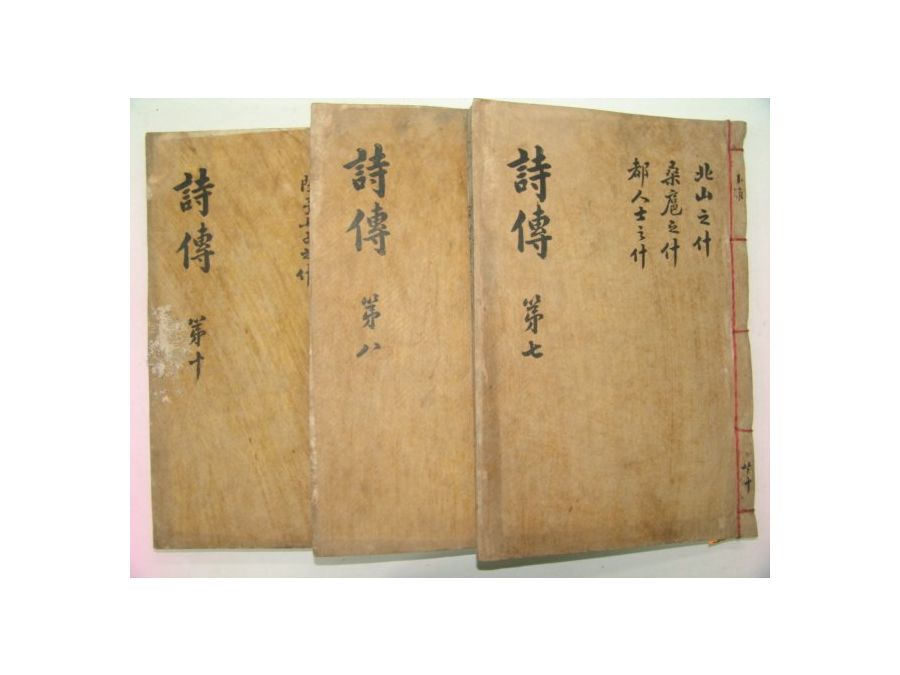 北山之什
桑扈之什
都人士之什
詩傳
第七
詩傳
第八
詩傳
第十
共十